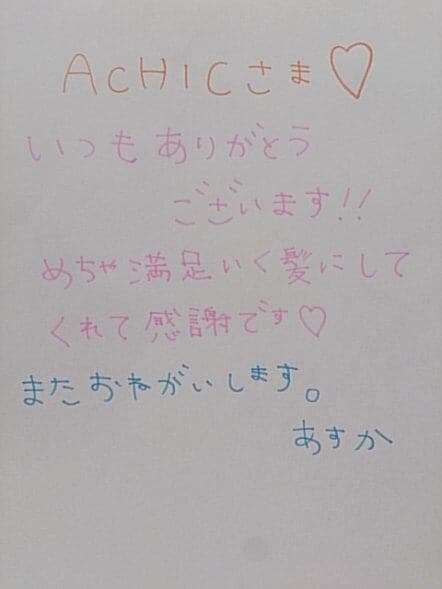 ACHICさま♡
いつもありがとう
ございます!!
めちゃ満足いく髪にして
くれて感謝です♡
またおねがいします。
あすか